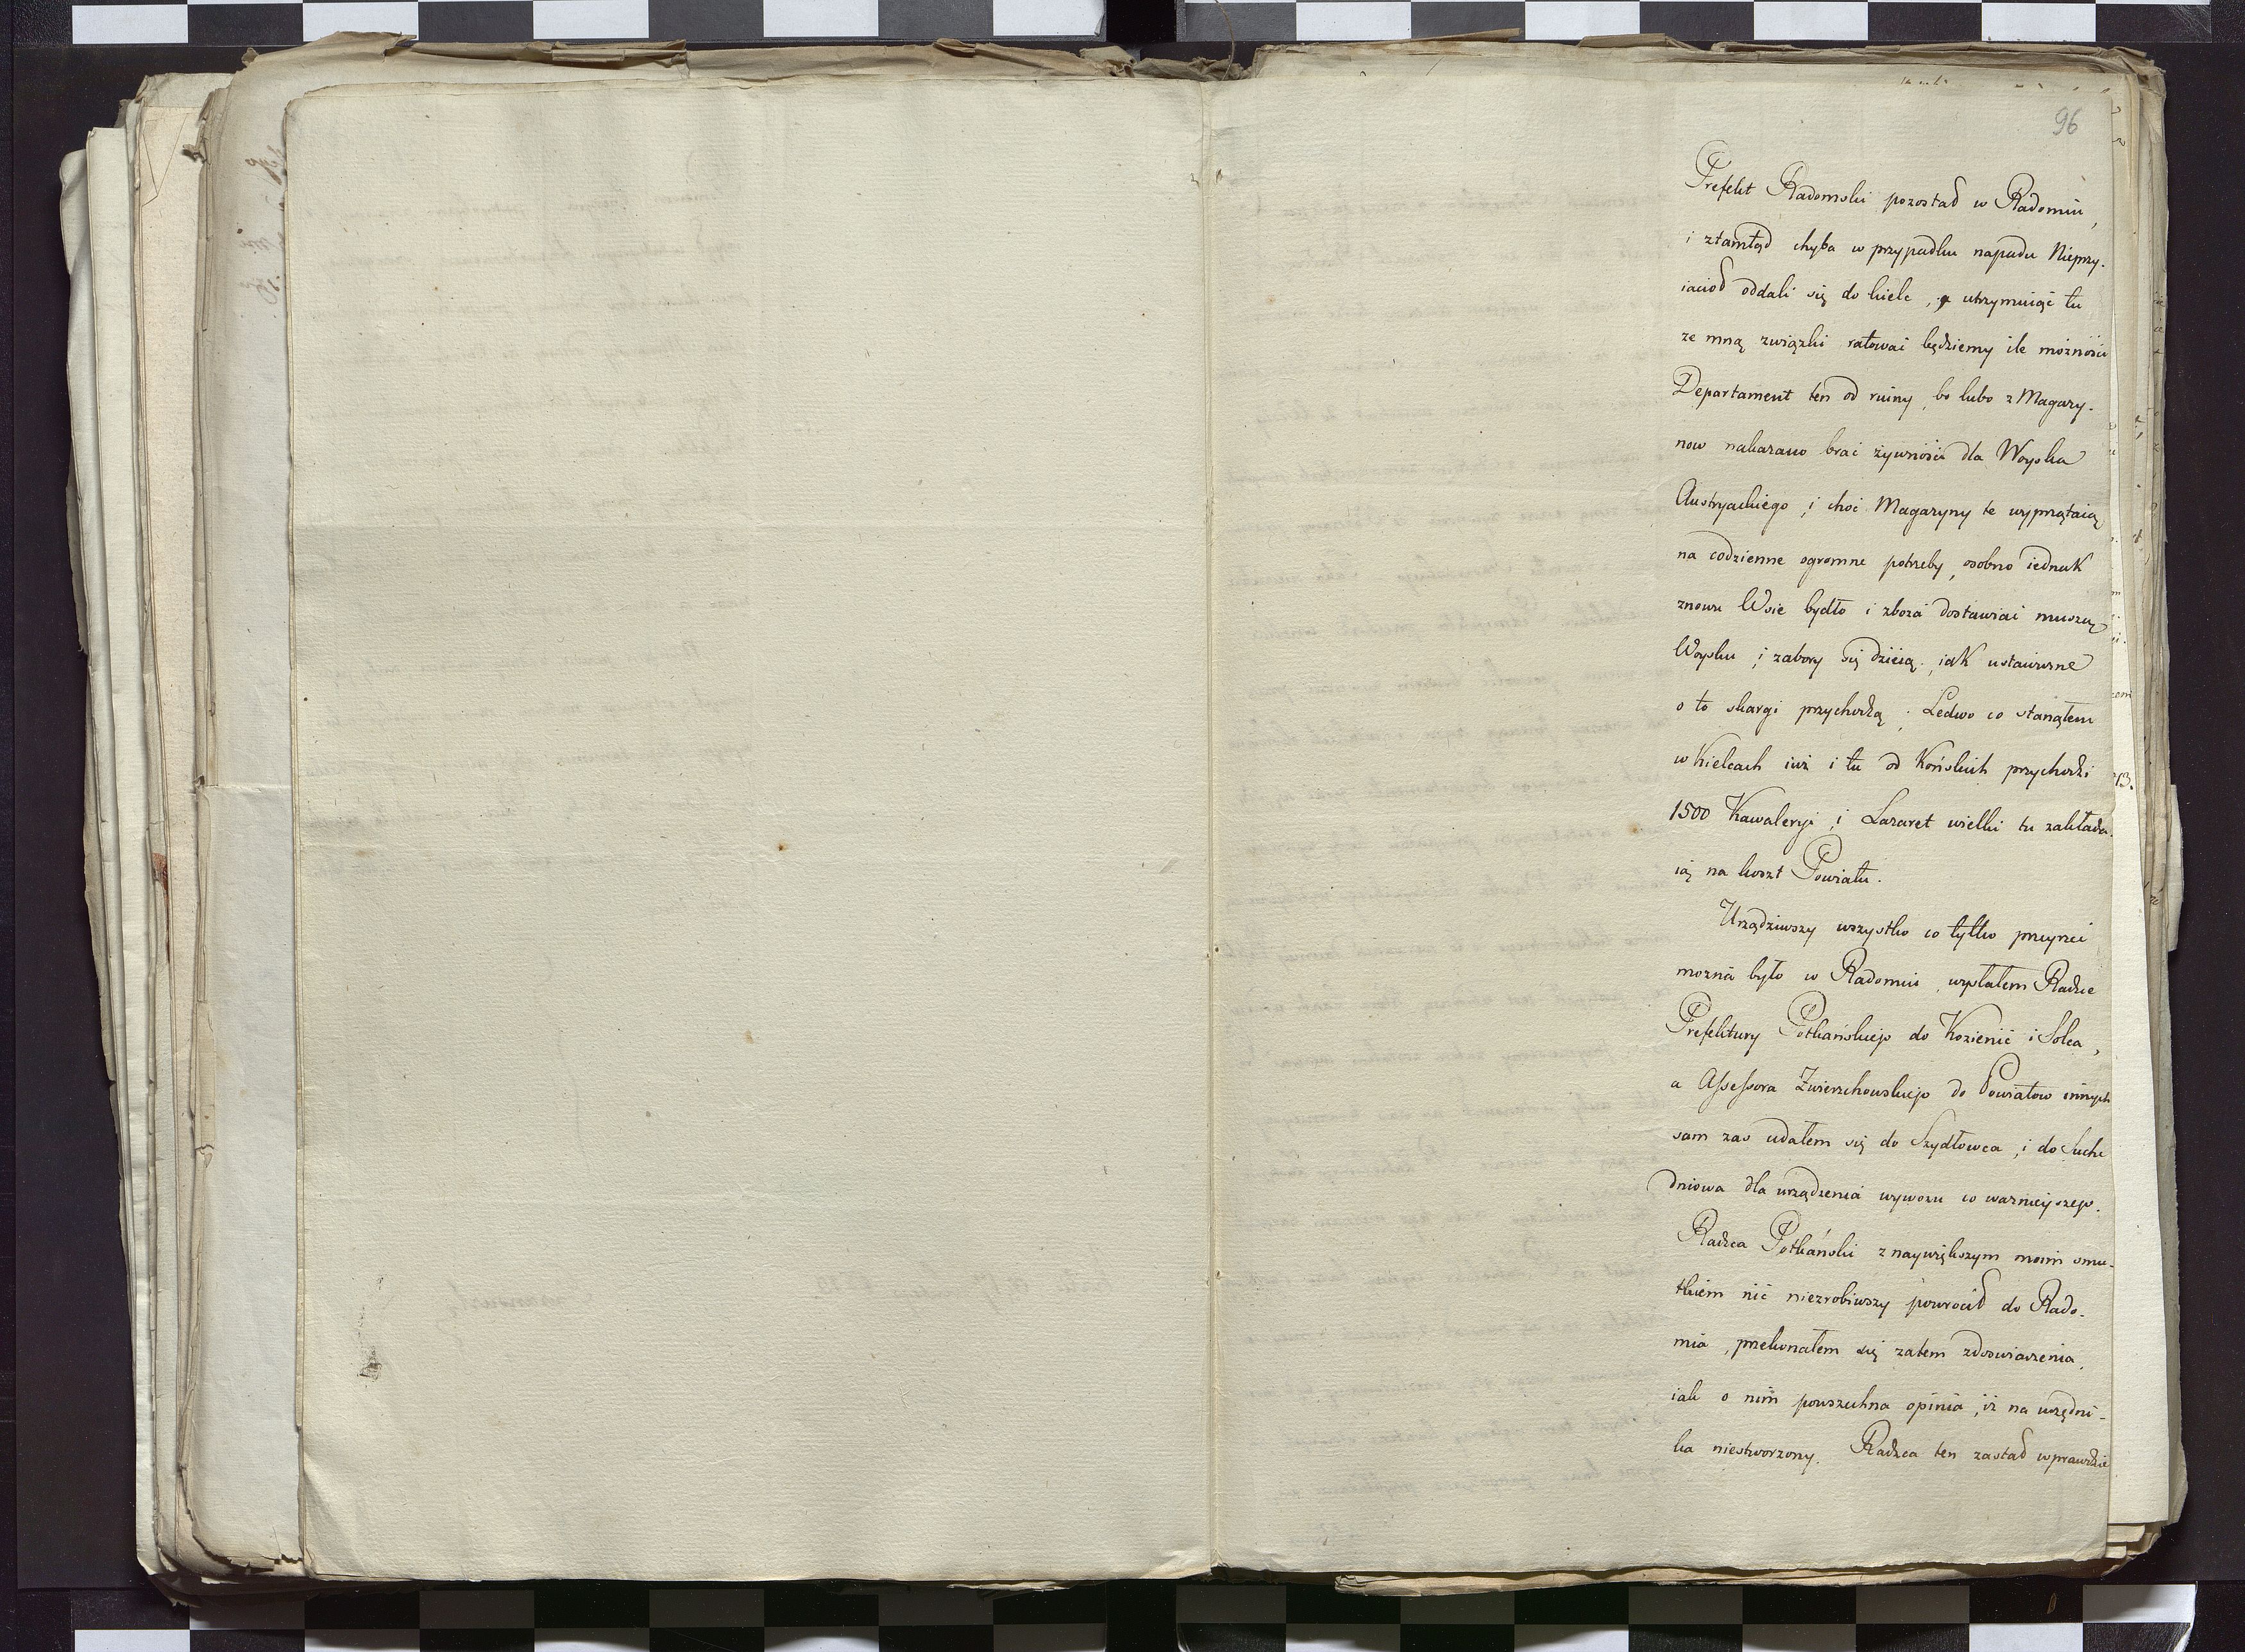 96
Prefekt Radomski pozostał w Radomiu,
i ztamtąd chyba w przypadku napadu Nieprzy.
iaciół oddali się do Kielc, utrzymuiąc tu
ze mną związki ratować będziemy ile możności
Departament ten od ruiny, bo lubo z Magazy.
now nakazano brać żywności dla Woyska
Austryackiego, i choć Magazyny te wyprzątaią
na codzienne ogromne potrzeby, osobno iednak
znowu Wsie bydło i zboża dostawiać muszą
Woysku, i zabory się dzieią, iak ustawne
o to skargi przychodzą. Ledwo co stanąłem
w Kielcach iuż i tu od Końskich przychodzi
1500 Kawaleryi, i Lazaret wielki tu zakłada.
ią na koszt Powiatu.
Urządziwszy wszystko co tylko przeyrzeć
można było w Radomiu, wysłałem Radzce
Prefektury Potkańskiego do Kozienic i Solca,
a Assessora Zwierzchowskiego do Powiatow innych
sam zas udałem się do Szydłowca, i do Suche
dniowa dla urządzenia wywozu co ważnieyszego.
Radzca Potkański z naywiększym moim smu-
tkiem nic niezrobiwszy powrócił do Rado-
mia, przekonałem się zatem z doswiadzenia,
iak o nim powszechna opinia, iż na urzędni-
ka niestworzony. Radzca ten zastał wprawdzie